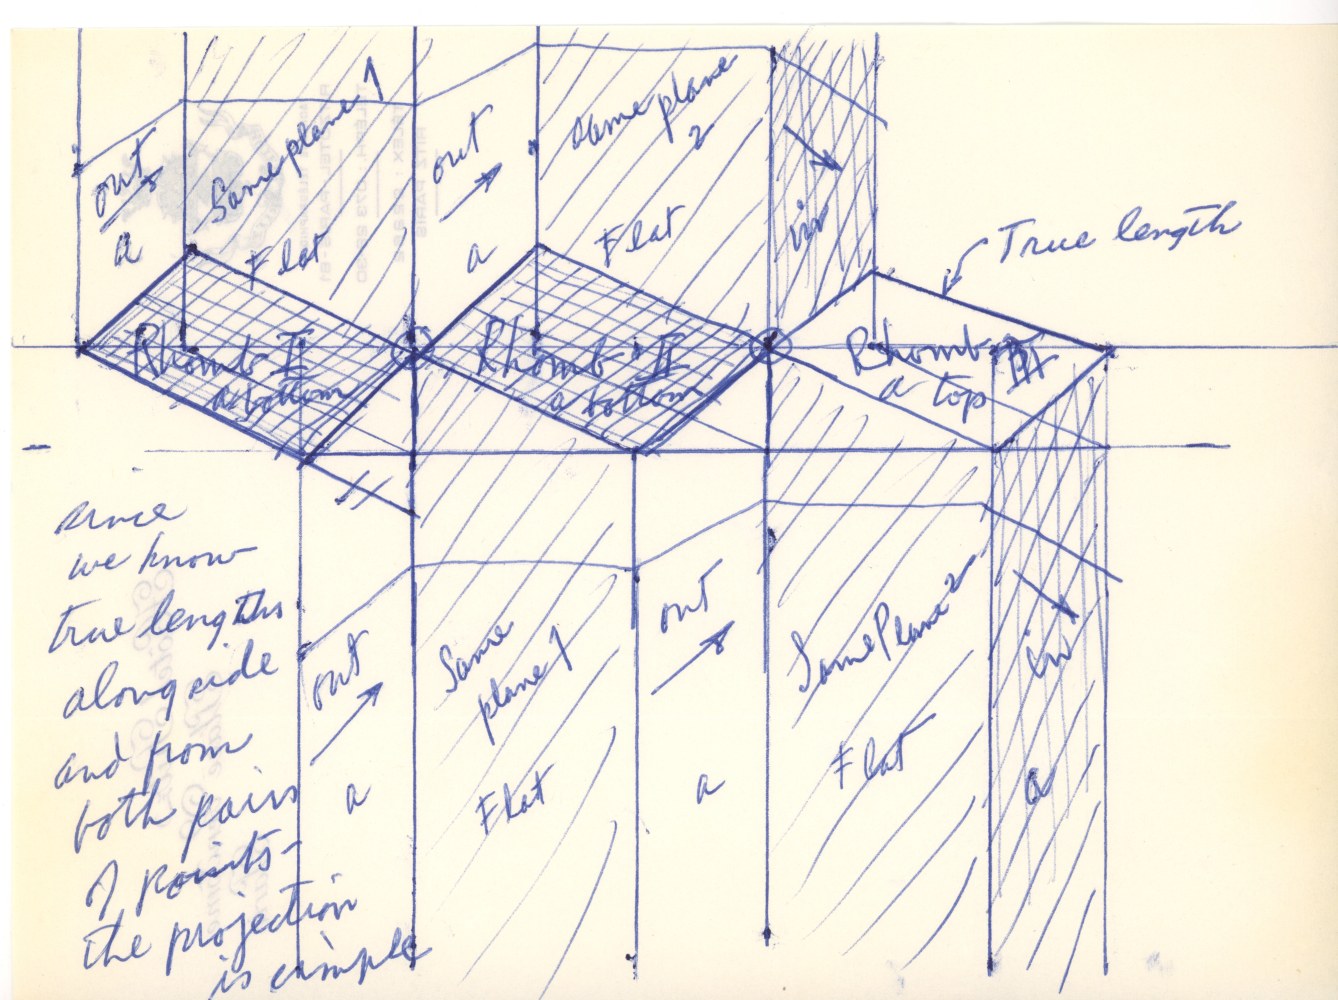 out
a
Same plane 1
Flat
out
a
same plane
2
Flat
in
True length
Rhomb II
a bottom
Rhomb II
a bottom
Rhomb III
a top
since
we know
true lengths
alongside
and from
both pairs
of points -
the projection
is simple
out
a
Same
plane 1
Flat
out
a
Same Plane 2
Flat
in
a
RITZ PARIS